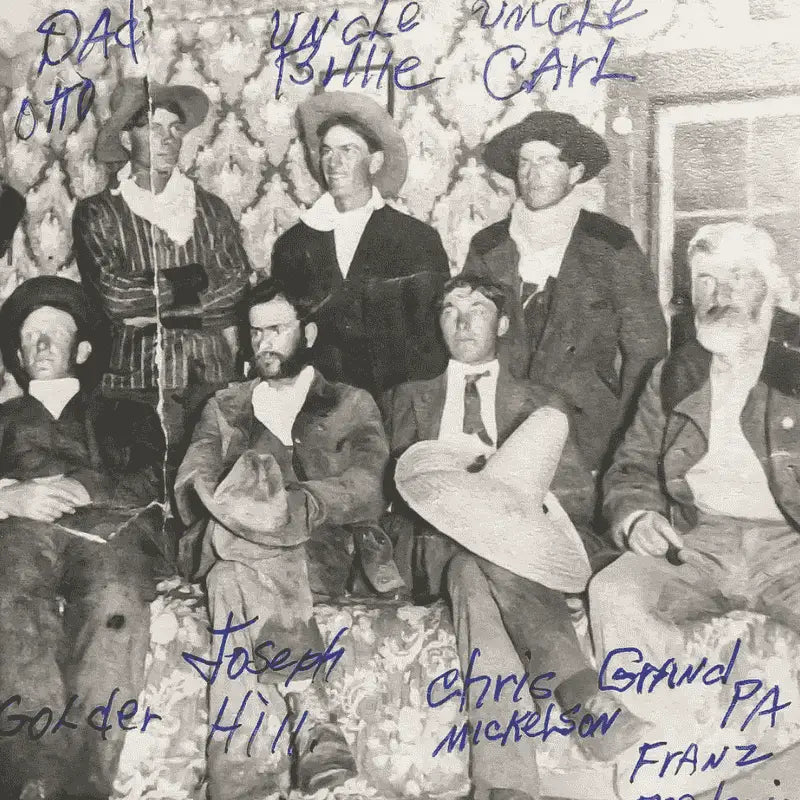 DAd
OttO
UNclE
BIllIe
UNCLE
CARL
Golder
Joseph
Hill
Chris
MICKElSON
GRANd
PA
FRANZ